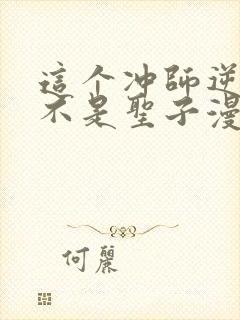 這个冲師逆
不是聖子漫
何麗